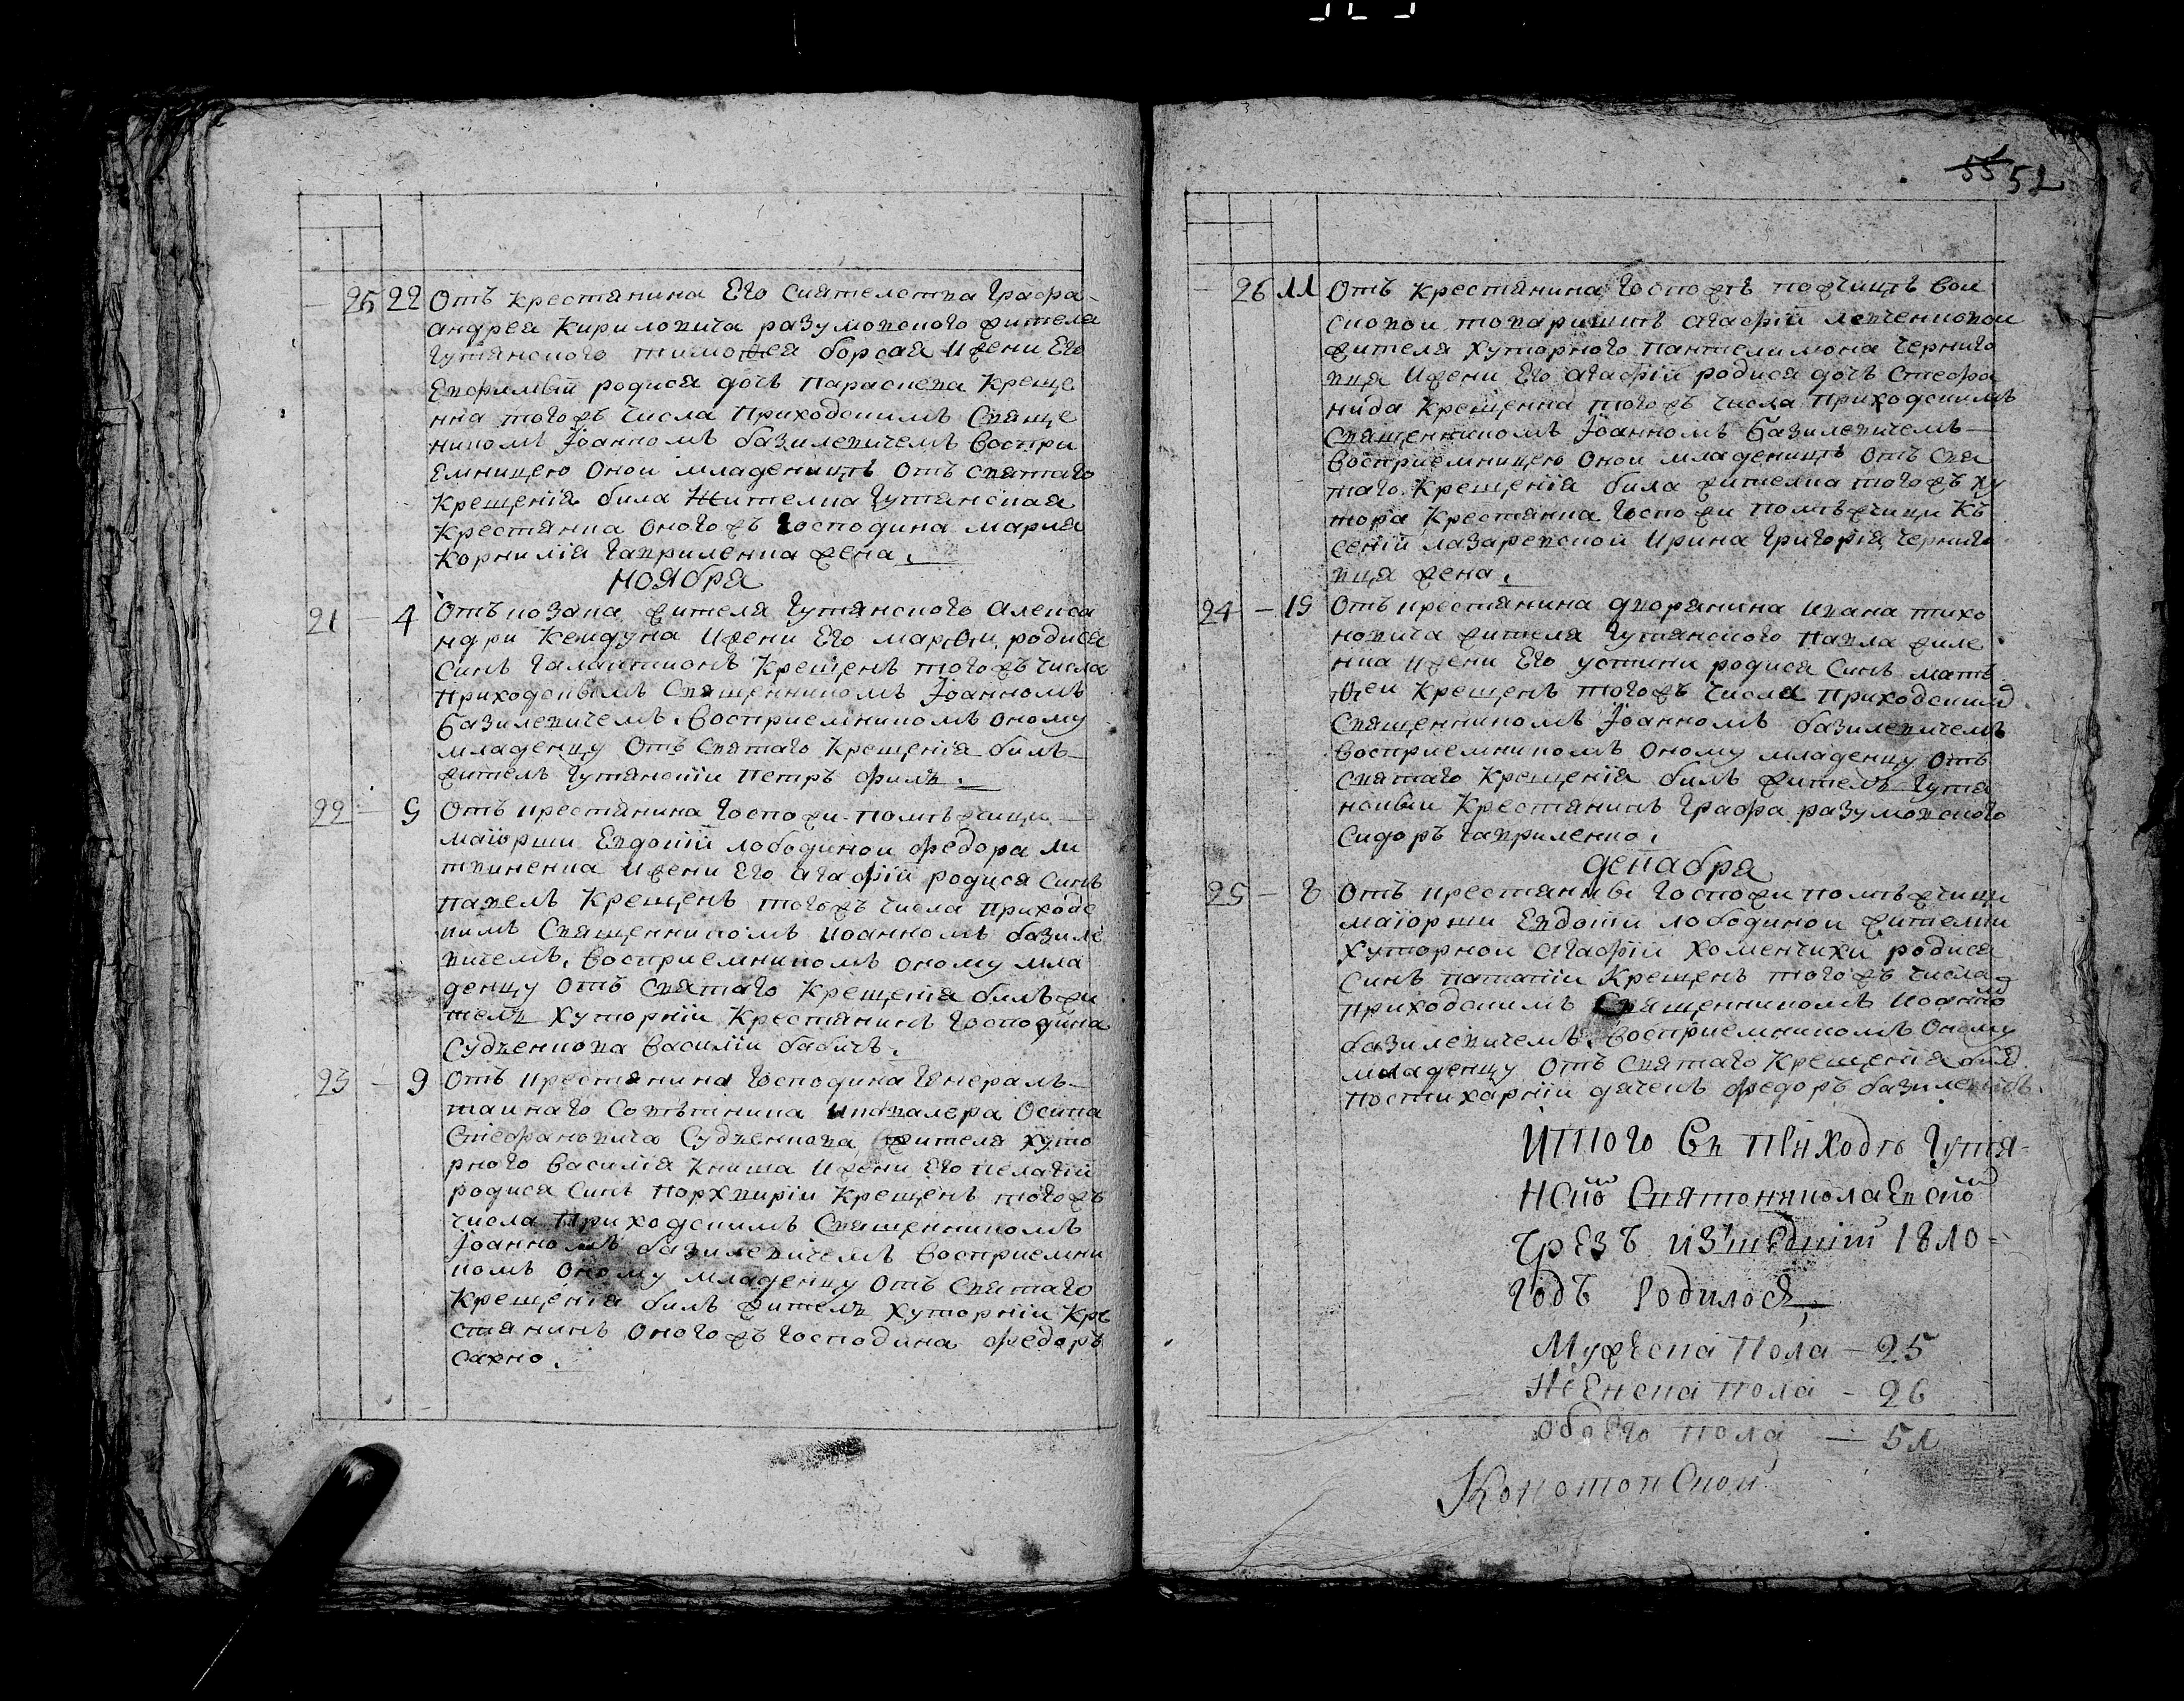 55 52
— 25 22 Отъ крестянина Его Сиятелства Графа
андрея Кириловича разумовского жителя
Гутянского тимофея борсая Ижени Его
Евфимъи родися дочъ параскева Креще
нна тогожъ числа приходскимъ Свяще
никомъ Іоанномъ базилевичемъ воспри
Емницею Онои младеницѣ Отъ святаго
Крещенія била Жителка Гутянская
Крестянка Оногожъ Господина мария
Корнилія Гавриленка жена.
Ноября
21 — 4 Отъ козака жителя Гутянского Алекса
ндри Ижени Его марѳи родися
Синъ Галактионъ Крещенъ тогожъ числа
приходскимъ Священникомъ Іоанномъ
базилевичемъ. Восприемникомъ оному
младенцу Отъ Святаго Крещенія билъ
житель Гутянскій Петръ филь.
22 — 5 Отъ крестянина Госпожи помѣжчици
маіорши Евдокій лободинои федора ли
твиненка Ижени Его агафій родися Синъ
павелъ Крещенъ тогожъ числа приходс
кимъ Священникомъ иоанномъ базиле
вичемъ. Восприемникомъ оному мла
денцу Отъ Святаго Крещенія билъ жи
тель Хуторній Крестянинъ Господина
Судъенкова Василій бабичъ.
23 — 9 Отъ крестянина Господина Генералъ
таинаго Совѣтника икавалера Осипа
Стефановича Судъенкова жителя хуто
рного Василія Книша Ижени Его пелагій
родися Синъ Порхвирій Крещенъ тогожъ
числа Приходскимъ Священникомъ
Іоанномъ базилевичемъ Восприемни
комъ Оному младенцу Отъ Святаго
Крещенія билъ житель хуторній Кре
стянинъ Оногожъ Господина федоръ
Сахно.
— 26 11 Отъ крестянина Госпожѣ порчицѣ вои
сковои товаришкѣ агафіи левченковои
жителя Хуторного Пантелимона Черниго
вця Ижени Его агафій родися дочъ Стефа
нида Крещенна тогожъ числа приходскимъ
Священникомъ Іоанномъ базилевичемъ
Восприемницею Онои младеницѣ Отъ Свя
таго Крещенія била жителка тогожъ ху
тора Крестянка Госпожи помѣжчици Кс
сеній лазаревской Ирина Григорія Черниго
вця жена.
24 — 15 Отъ крестянина дворянина ивана тихо
новича жителя Гутянского павла филе
нка Ижени Его устини родися Синъ мать
фей Крещенъ тогожъ числа приходскимъ
Священникомъ Іоанномъ базилевичемъ
Восприемникомъ оному младенцу Отъ
Святаго Крещенія билъ житель Гутя
нскии Крестянинъ Графа разумовского
Сидоръ Гавриленко.
декабря
25 — 8 Отъ крестянки Госпожи помѣжчици
маіорши Евдокій лободинои жителки
Хуторнои Агафіи Хоменчихи родися
Синъ патапій Крещенъ тогожъ числа
приходскимъ Священникомъ Иоанномъ
базилевичемъ. Восприемникомъ Оному
младенцу Отъ Святаго Крещенія билъ
постихарній дячекъ федоръ базилевичъ.
Итого Въ приходѣ Гутя
нской Святониколаевской
чрезъ изшедшій 1810
Годъ родилося
Мужеска Пола — 25
Женска пола — 26
Обоего пола — 51
Конотопской